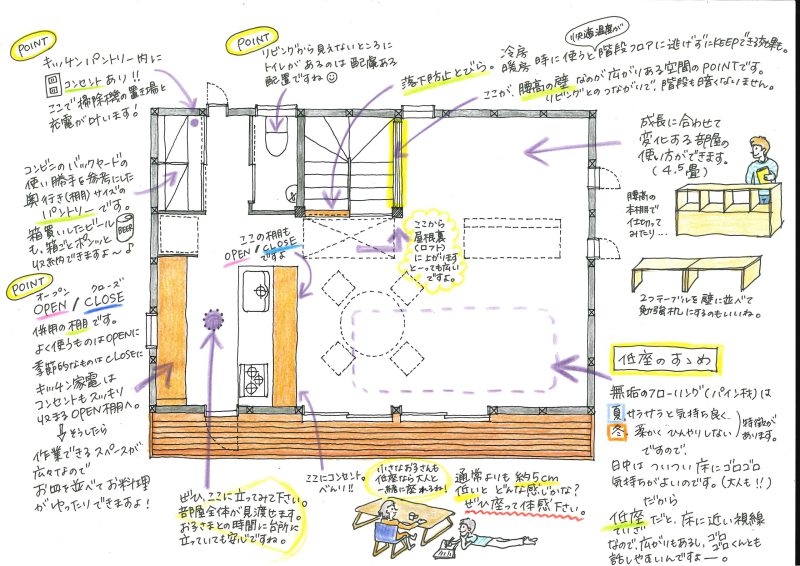 POINT
キッチンパントリー内に
コンセントあり!!
ここで掃除機の置き場と
充電がOKいます!
コンビニのバックヤードの
使い勝手を参考にした
奥行き(棚)サイズの
パントリーです。
箱買いしたビール
BEER
も、箱ごとポンッと
収納できますよ～♪
POINT
オープン クローズ
OPEN / CLOSE
併用の棚です。
よく使うものはOPENに
季節的なものはCLOSEに
キッチン家電は
コンセントもスッキリ
収まるOPEN棚へ。
↓そうしたら
作業できるスペースが
広々なので
お皿を並べてお料理
がゆったりできますよ!
POINT
リビングから見えないところに
トイレがあるのは配慮ある
配置ですね
落下防止とびら。
冷房
暖房
時に使うと階段フロアに逃げずにKEEPできる効果も。
快適温度が
ここが、腰高の壁なのが広がりある空間のPOINTです。
リビングとのつながりで、階段も暗くないません。
成長に合わせて
変化する部屋の
使い方ができます。
(4.5畳)
腰高の
本棚で
仕切って
みたり…
2つテーブルを壁に並べて
勉強机にするのもいいね。
ここの棚も
OPEN/CLOSE
ですよ
ここから
屋根裏
(ロフト)
に上がります
とーっても広い
ですよ。
低座のすゝめ
無垢のフローリング(パイン材)は
夏 サラサラと気持ち良く
冬 柔かくひんやりしない
特徴が
あります。
ですので、
日中はついつい床にゴロゴロ
気持ちがよいのです。(大人も!!)
だから
低座だと、床に近い視線
ていざ
なので、広がりもあるし、ゴロ
ゴロくんとも
話しやすいんですよー{
ぜひ、ここに立ってみて下さい。
部屋全体が見渡せます。
お子さまとの時間に台所に
立っていても安心ですね。
ここにコンセント。
べんり!!
小さなお子さんも
低座なら大人と
一緒に座れるね!
通常よりも約5cm
低いとどんな感じかな?
ぜひ座って体感下さい。